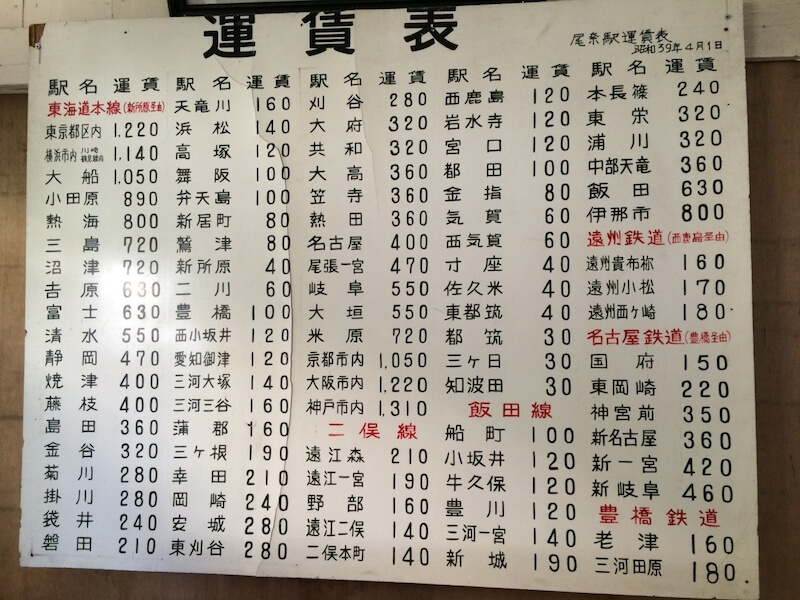 運賃表
尾奈駅運賃表
昭和39年4月1日
駅名 運賃
東海道本線(新所原経由)
東京都区内 1,220
横浜市内 川崎鶴見線内 1,140
大船 1,050
小田原 890
熱海 800
三島 720
沼津 720
吉原 630
富士 630
清水 550
静岡 470
焼津 400
藤枝 400
島田 360
金谷 320
菊川 280
掛川 280
袋井 240
磐田 210
駅名 運賃
天竜川 160
浜松 140
高塚 120
舞阪 100
弁天島 100
新居町 80
鷲津 80
新所原 40
二川 60
豊橋 100
西小坂井 120
愛知御津 120
三河大塚 140
三河三谷 160
蒲郡 160
三ヶ根 190
幸田 210
岡崎 240
安城 280
東刈谷 280
駅名 運賃
刈谷 280
大府 320
共和 320
大高 360
笠寺 360
熱田 360
名古屋 400
尾張一宮 470
岐阜 550
大垣 550
米原 720
京都市内 1,050
大阪市内 1,220
神戸市内 1,310
二俣線
遠江森 210
遠江一宮 190
野部 160
遠江二俣 140
二俣本町 140
駅名 運賃
西鹿島 120
岩水寺 120
宮口 120
都田 100
金指 80
気賀 60
西気賀 60
寸座 40
佐久米 40
東都筑 40
都筑 30
三ヶ日 30
知波田 30
飯田線
船町 100
小坂井 120
牛久保 120
豊川 120
三河一宮 140
新城 190
駅名 運賃
本長篠 240
東栄 320
浦川 320
中部天竜 360
飯田 630
伊那市 800
遠州鉄道(西鹿島経由)
遠州貴布祢 160
遠州小松 170
遠州西ヶ崎 180
名古屋鉄道(豊橋経由)
国府 150
東岡崎 220
神宮前 350
新名古屋 360
新一宮 420
新岐阜 460
豊橋鉄道
老津 160
三河田原 180